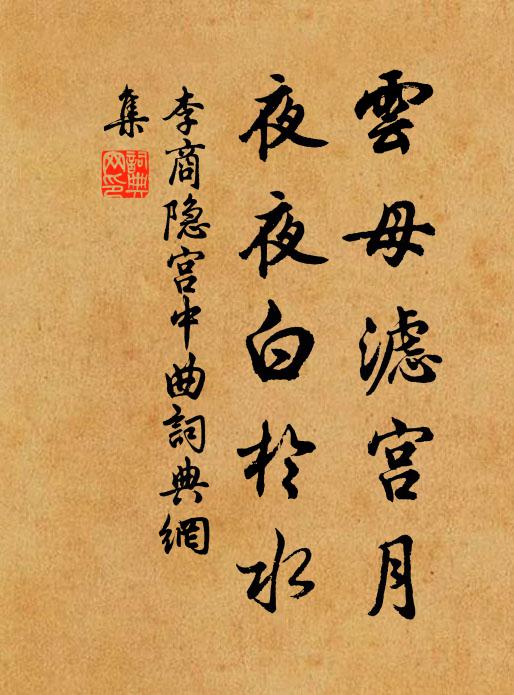 雲母濾宫月
夜夜白於水
李商隐宫中曲詞典網
集
詞典網印